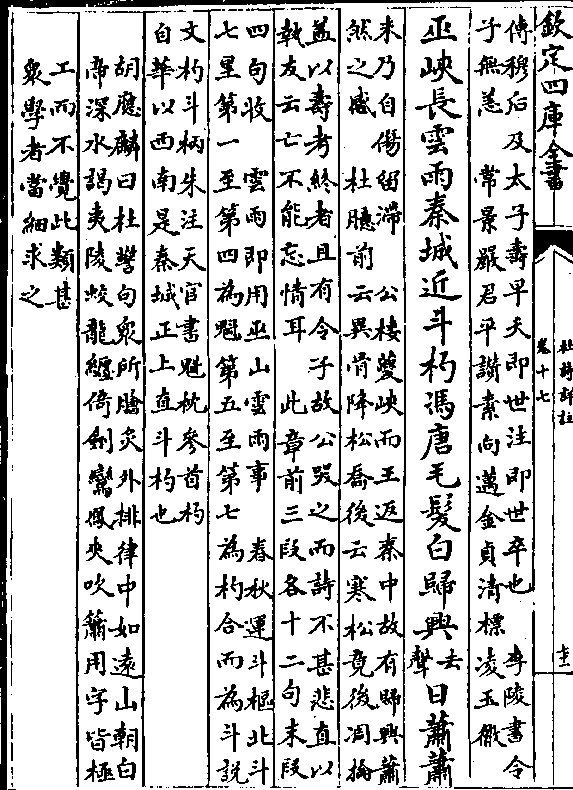 欽定四庫全書
杜詩詳註
卷十七
傳穆后及太子壽早夭即世注即世卒也　李陵書令
子無恙　常景嚴君平讚素向邁金貞清標凌玉徹
巫峽長雲雨秦城近斗杓馮唐毛髮白歸興去聲日蕭蕭
末乃自傷留滯　公棲夔峽而王返秦中故有歸興蕭
然之感　杜臆前云異骨降松喬後云寒松竟後凋掄
蓋以壽考終者且有令子故公哭之而詩不甚悲直以
執友云亡不能忘情耳　此章前三段各十二句末段
四句收　雲雨即用巫山雲雨事　春秋運斗樞北斗
七星第一至第四為魁第五至第七為杓合而為斗說
文杓斗柄朱注天官書魁枕參首杓
自華以西南是秦城正上直斗杓也
胡應麟曰杜警句衆所膾炙外排律中如遠山朝白
帝深水謁夷陵蛟龍纏倚劍鸞鳳夾吹簫用字皆極
工而不覺此類甚
衆學者當細求之